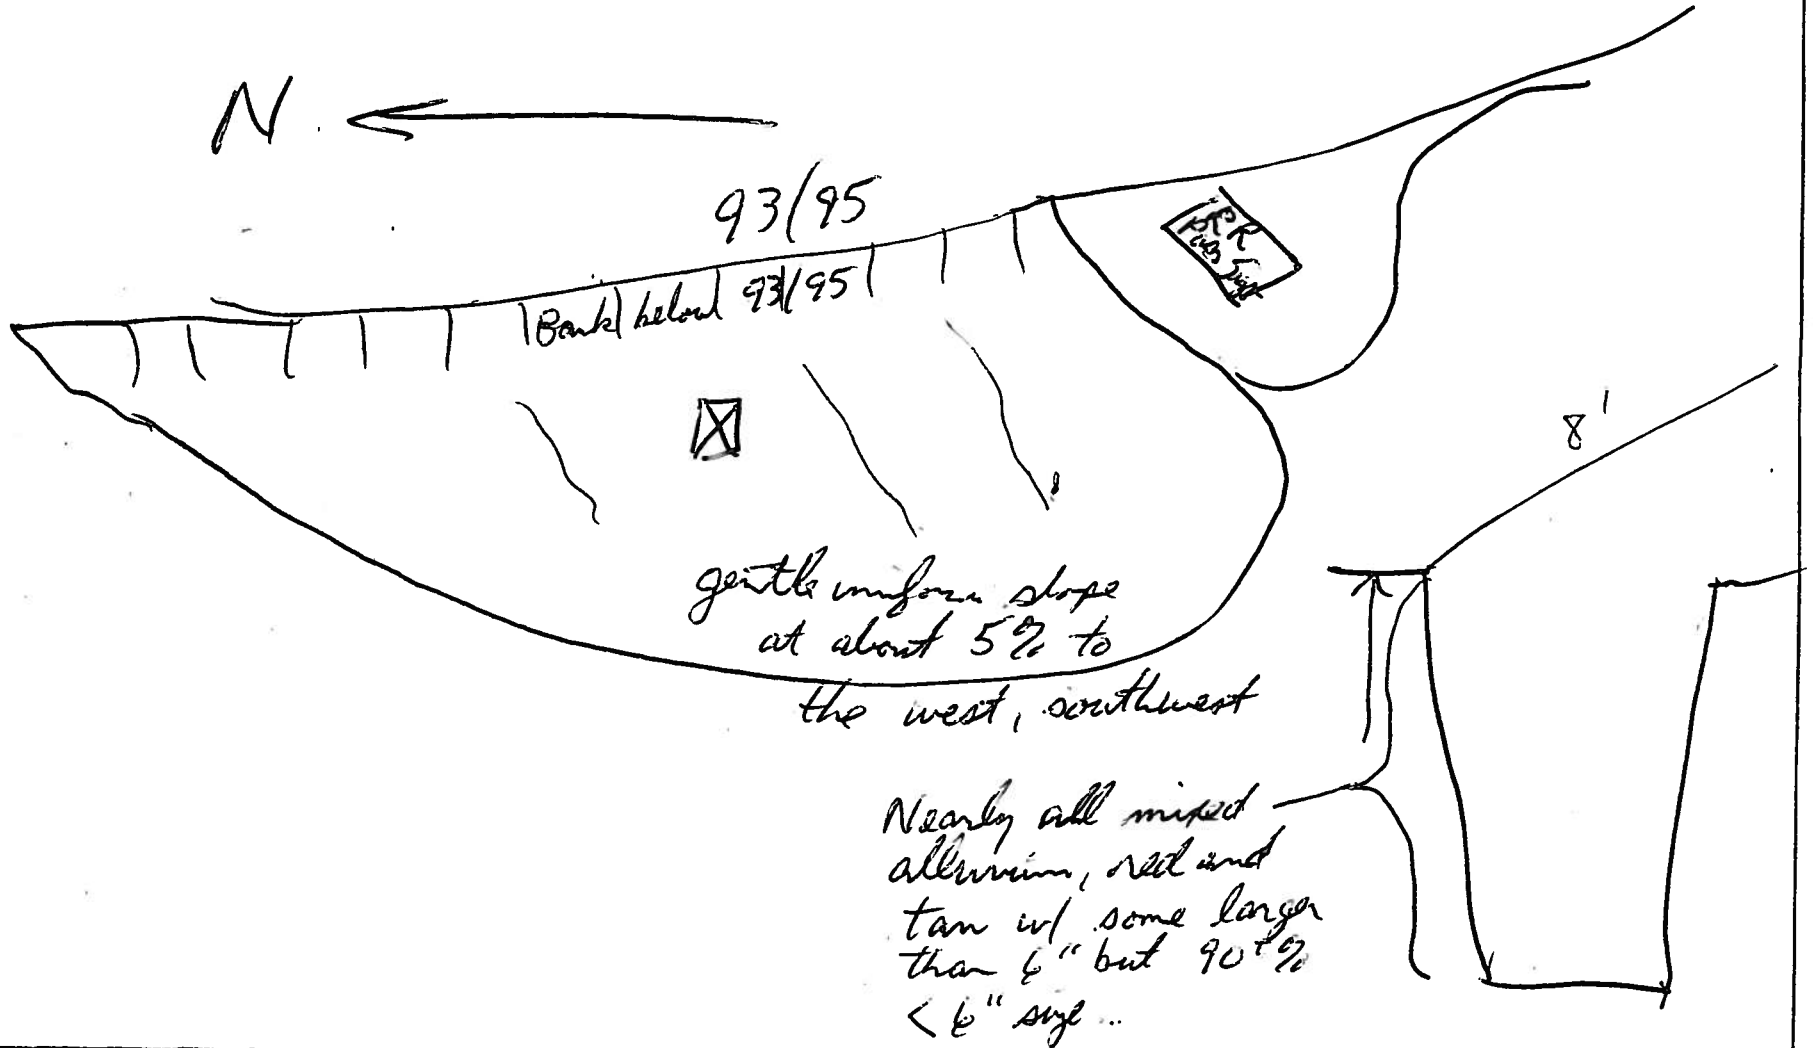 N
93/95
Bank below 93/95
8'
gentle uniform slope
at about 5% to
the west, southwest
Nearly all mixed
alluvium, red and
tan w/ some larger
than 6" but 90+%
< 6" size ..